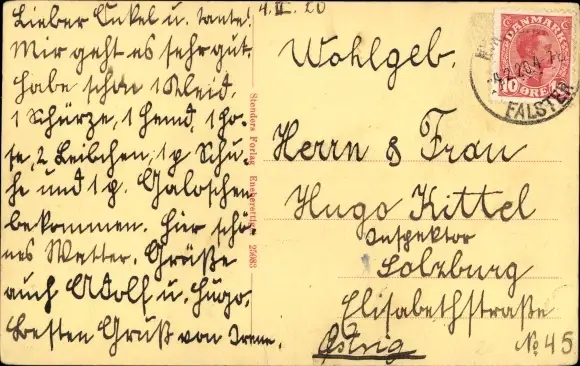 4.II.20
Lieber Onkel u. Tante!
Mir geht es sehr gut.
habe schön 1 Kleid.
1 Schürze, 1 Hemd, 1 Ho-
se, 2 Leibchen, 1 p Schu-
he und 1 p. Galoschen
bekommen. Hier schö-
nes Watter. Grüße
auch Adolf u. Hugo.
Besten Gruß von Irene.
Stenders Forlag Eneberettiget 25083
DANMARK
10 ØRE 10
4.2.20.4
FALSTER
Wohlgeb.
Herrn & Frau
Hugo Kittel
Inspektor
Solzburg
Elisabethstraße
No 45
Östrig